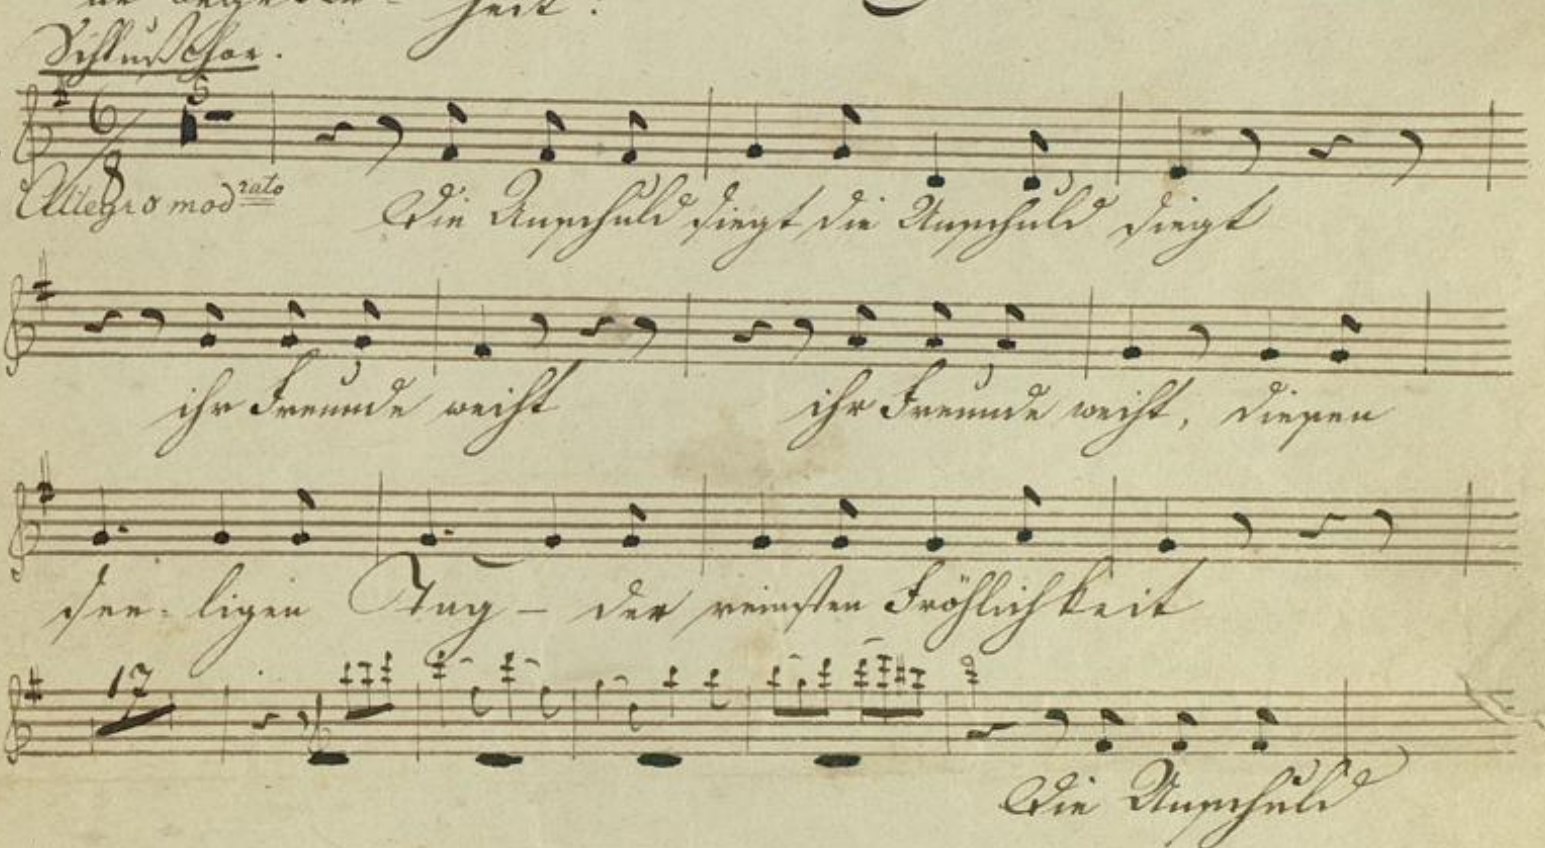 heit.
Schlußchor.
5
6/8
Allegro modrato
Die Unschuld siegt die Unschuld siegt
ihr Freunde weiht ihr Freunde weiht, diesen
see-ligen Tag – der reinsten Fröhlichkeit
17
Die Unschuld